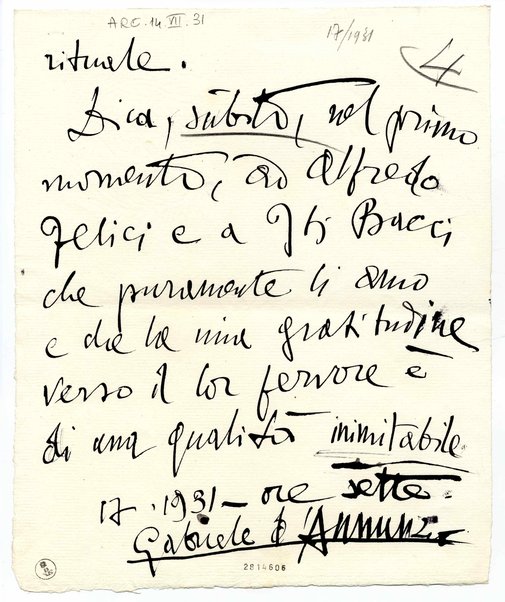 ARC. 14 VII. 31
17/1931
4
rituale.
Dica, sùbito, nel primo
momento, ad Alfredo
Felici e a Iti Bacci
che puramente li amo
e che la mia gratitudine
verso il lor fervore è
di una qualità inimitabile
17. 1931 – ore sette.
Gabriele d'Annunzio
2814606